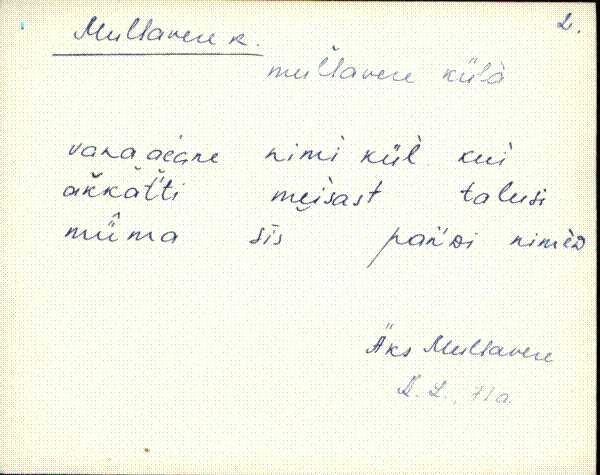 2.
Mullavere k.
mullavere külà
vana aeane nimi kül kui
akkàťti meisast talusi
mǖma sis pańDi nimèD
Äks Mullavere
L. L., 71 a.